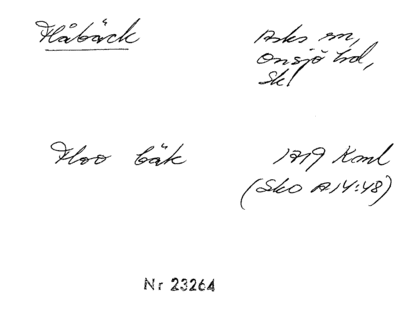 Håbäck
Asks sn,
Onsjö hd,
Sk.
Hoo bäk
1719 Kml
(Sko A14:48)
Nr 23264